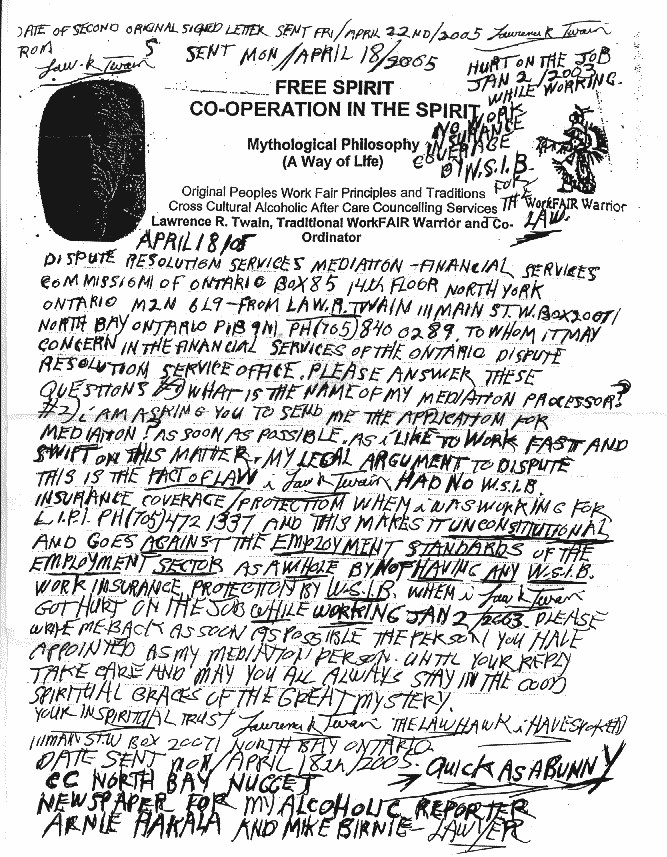 DATE OF SECOND ORIGINAL SIGNED LETTER SENT FRI/APRIL 22ND/2005 Lawrence R Twain
ROM
Law. R. Twain
S
SENT MON/APRIL 18/2005
HURT ON THE JOB
JAN 2/2003
WHILE WORKING.
NO WORK
INSURANCE
COVERAGE
BY W.S.I.B.
FOR
THE
LAW.
FREE SPIRIT
CO-OPERATION IN THE SPIRIT
Mythological Philosophy
(A Way of Life)
Original Peoples Work Fair Principles and Traditions
Cross Cultural Alcoholic After Care Councelling Services
WorkFAIR Warrior
Lawrence R. Twain, Traditional WorkFAIR Warrior and Co-
Ordinator
APRIL 18/05
DISPUTE RESOLUTION SERVICES MEDIATION-FINANCIAL SERVICES
COMMISSION OF ONTARIO BOX 85 14th FLOOR NORTH YORK
ONTARIO M2N 6L9-FROM LAW.R.TWAIN 111 MAIN ST.W. BOX 20071
NORTH BAY ONTARIO P1B 9N1 PH(705)840 0289. TO WHOM IT MAY
CONCERN IN THE FINANCIAL SERVICES OF THE ONTARIO DISPUTE
RESOLUTION SERVICE OFFICE. PLEASE ANSWER THESE
QUESTIONS WHAT IS THE NAME OF MY MEDIATION PROCESSOR?
#2) i AM ASKING YOU TO SEND ME THE APPLICATION FOR
MEDIATION? AS SOON AS POSSIBLE. AS i LIKE TO WORK FAST AND
SWIFT ON THIS MATTER. MY LEGAL ARGUMENT TO DISPUTE
THIS IS THE FACT OF LAW i Law R Twain HAD NO W.S.I.B.
INSURANCE COVERAGE/PROTECTION WHEN i WAS WORKING FOR
L.I.P.I. PH(705)472 1337 AND THIS MAKES IT UNCONSTITUTIONAL
AND GOES AGAINST THE EMPLOYMENT STANDARDS OF THE
EMPLOYMENT SECTOR AS A WHOLE BY NOT HAVING ANY W.S.I.B.
WORK INSURANCE PROTECTION BY W.S.I.B. WHEN i Law R Twain
GOT HURT ON THE JOB WHILE WORKING JAN 2/2003. PLEASE
WRITE ME BACK AS SOON AS POSSIBLE THE PERSON YOU HAVE
APPOINTED AS MY MEDIATION PERSON. UNTIL YOUR REPLY
TAKE CARE AND MAY YOU ALL ALWAYS STAY IN THE GOOD
SPIRITUAL GRACES OF THE GREAT MYSTERY.
YOUR IN SPIRITUAL TRUST Lawrence R Twain THE LAW HAWK i HAVE SPOKEN
111 MAIN ST.W BOX 20071 NORTH BAY ONTARIO.
DATE SENT MON/APRIL 18th/2005.
QUICK AS A BUNNY
CC NORTH BAY NUGGET
NEWSPAPER FOR MY ALCOHOLIC REPORTER
ARNIE HAKALA AND MIKE BIRNIE-LAWYER